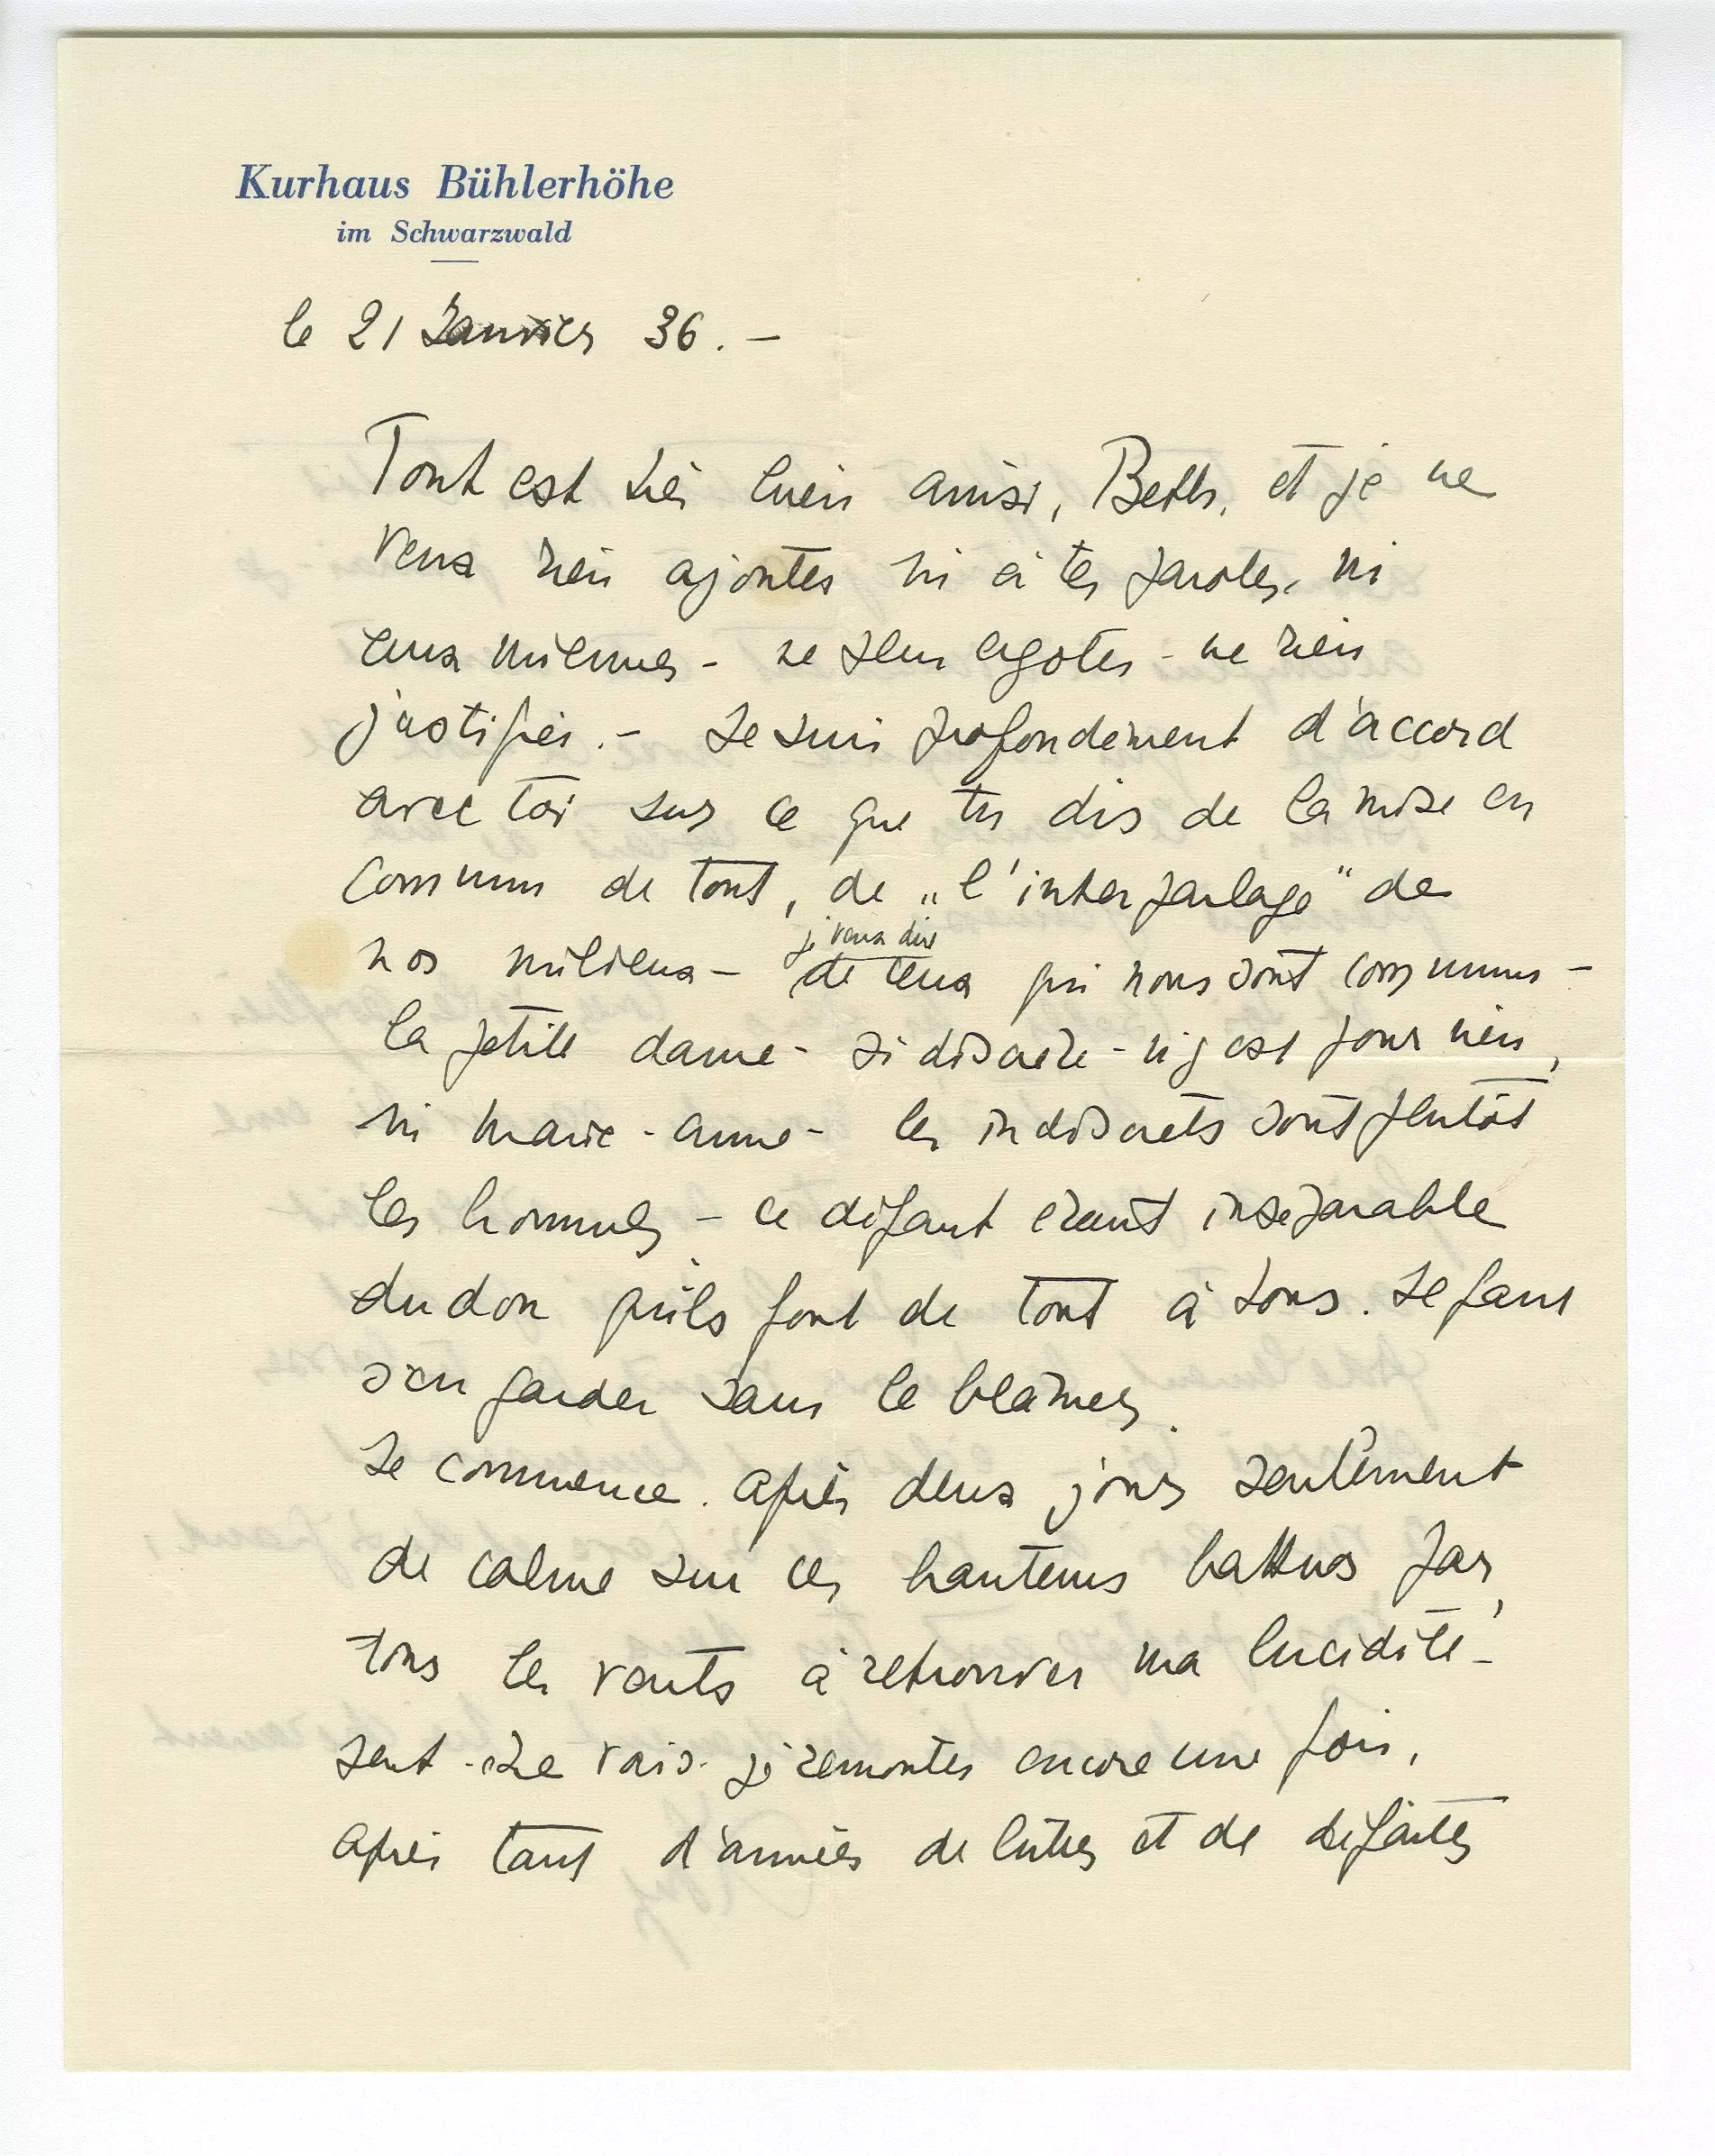 Kurhaus Bühlerhöhe
im Schwarzwald
le 21 Janvier 36. –
Tout est très bien ainsi, Beth, et je ne
veux rien ajouter ni à tes paroles, ni
aux miennes – ne rien
justifier. – Je suis profondément d'accord
avec toi sur ce que tu dis de la mise en
commun de tout, de „l'interparlage" de
nos milieux – je veux dire de ceux qui nous sont communs –
la petite dame – si discrète – n'y est pour rien,
ni Marie-Anne – les indiscrets sont plutôt
les hommes – ce défaut étant inséparable
du don qu'ils font de tout à tous. Il faut
s'en garder sans le blâmer.
Je commence. après deux jours seulement
de calme sur ces hauteurs battues par
tous les vents, à retrouver ma lucidité –
peut-être vais-je remonter encore une fois,
après tant d'années de luttes et de défaites